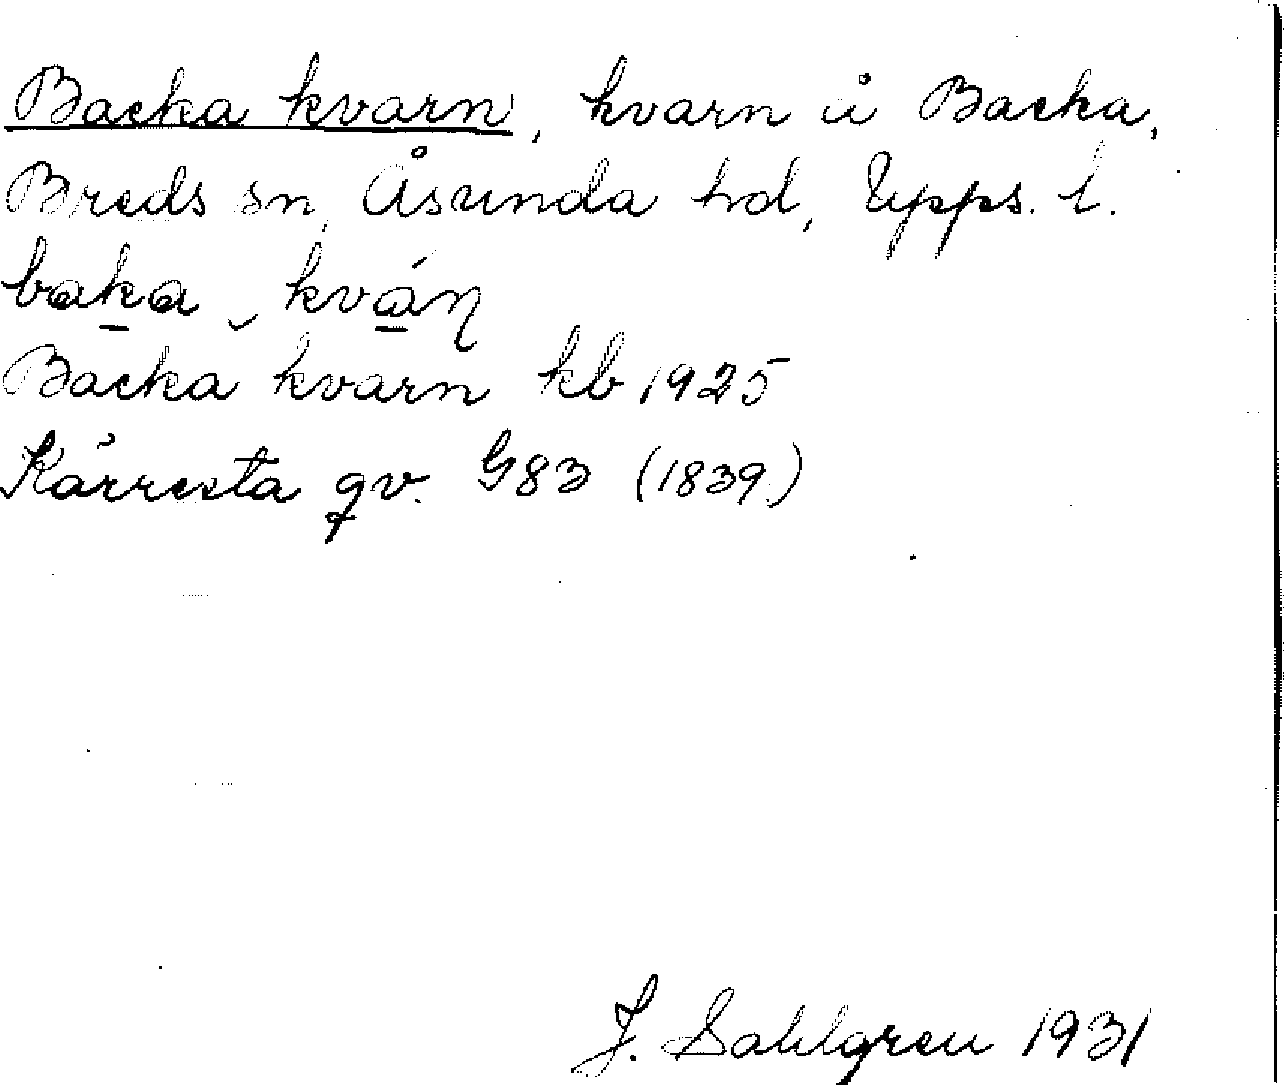 Backa kvarn, kvarn å Backa,
Breds sn, Åsunda hd, Upps. l.
baka ˬ kván
Backa kvarn kb 1925
Kärresta qv. G83 (1839)
J. Sahlgren 1931